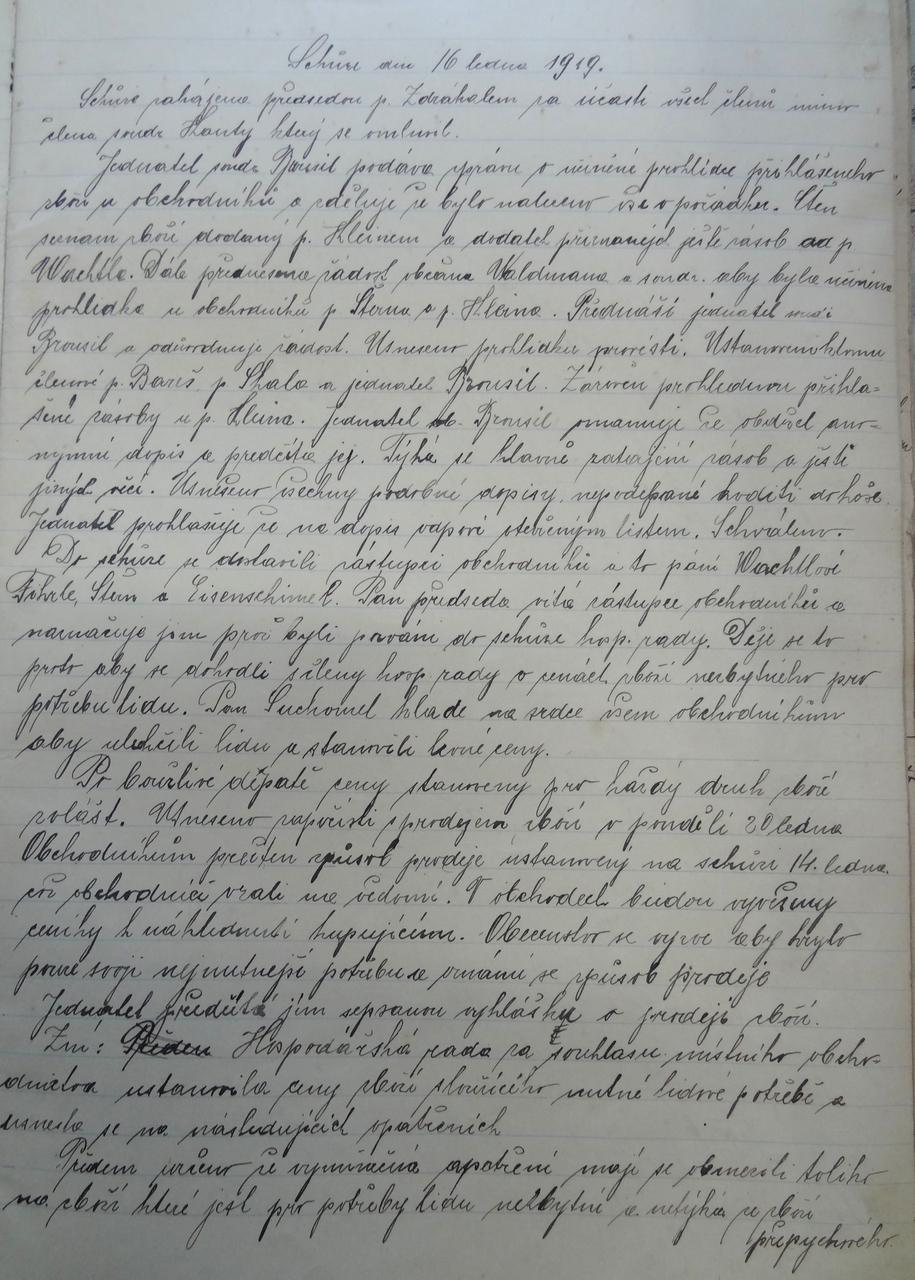 Schůze dne 16 ledna 1919.
Schůze zahájena předsedou p. Zdráhalem za účasti všech členů mimo
člena soudr. Kanty který se omluvil.
Jednatel soudr. Brousil podává zprávu o učiněné prohlídce přihlášeného
zboží u obchodníků a sděluje že bylo nalezeno vše v pořádku. Čten
seznam zboží dodaný p. Kleinem a dodatek přiznaných ještě zásob od p.
Wachtla. Dále přednesena žádost občana Waldmana a soudr. aby byla učiněna
prohlídka u obchodníků p Šterna a p. Kleina. Přednáší jednatel
Brousil a odůvodnuje žádost. Usneseno prohlídku provésti. Ustanoveni k tomu
členové p. Bareš, p Skala a jednatel Brousil. Zároveň prohlednou přihlá-
šené zásoby u p. Kleina. Jednatel Brousil oznamuje že obdržel ano-
nymní dopis a předčítá jej. Týká se hlavně zatajení zásob a jiště
jiných věcí. Usneseno všechny podobné dopisy, nepodepsané hoditi do koše.
Jednatel prohlašuje že na dopis odpoví otevřeným listem. Schváleno.
Do schůze se dostavili zástupci obchodníků a to páni Wachtlové
Fihrle, Štern a Eisenschimel. Pan předseda vítá zástupce obchodníků a
naznačuje jim proč byli pozváni do schůze hosp. rady. Děje se to
proto aby se dohodli s členy hosp rady o cenách zboží nezbytného pro
potřebu lidu. Pan Suchomel klade na srdce všem obchodníkům
aby ulehčili lidu a stanovili levné ceny.
Po bouřlivé depatě ceny stanoveny pro každý druh zboží
zvlášt. Usneseno započíti s prodejem zboží v pondělí 20 ledna
Obchodníkům přečten způsob prodeje ustanovený na schůzi 14. ledna.
což obchodníci vzali na vědomí. V obchodech budou vyvěšeny
ceníky k náhlednutí kupujícím. Obecenstvo se vyzve aby krylo
pouze svoji nejnutnejší potřebu a oznámí se způsob prodeje
Jednatel předčítá jím sepsanou vyhlášku o prodeji zboží.
Zní: Hospodářská rada za souhlasu místního obcho-
dnictva ustanovila ceny zboží sloužícího nutné lidové potřebě a
usnesla se na následujících opatřeních
Předem určeno že vyminečná opatření mají se obmeziti toliko
na zboží které jest pro potřeby lidu nezbytné a netýká se zboží
přepychového.